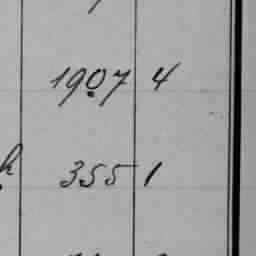 1907 4
h 355 1